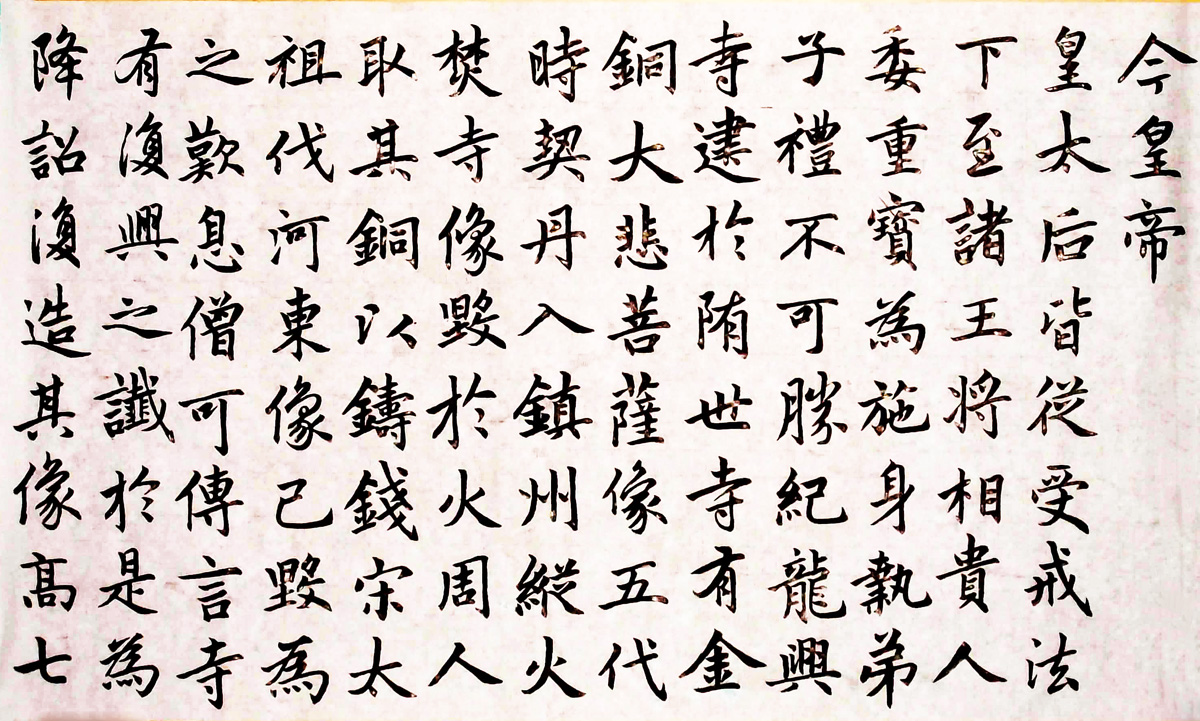 今皇帝
皇太后皆從受戒法
下至諸王將相貴人
委重寶為施身執弟
子禮不可勝紀龍興
寺建於隋世寺有金
銅大悲菩薩像五代
時契丹入鎮州縱火
焚寺像毀於火周人
取其銅以鑄錢宋太
祖伐河東像已毀為
之歎息僧可傳言寺
有復興之讖於是為
降詔復造其像高七